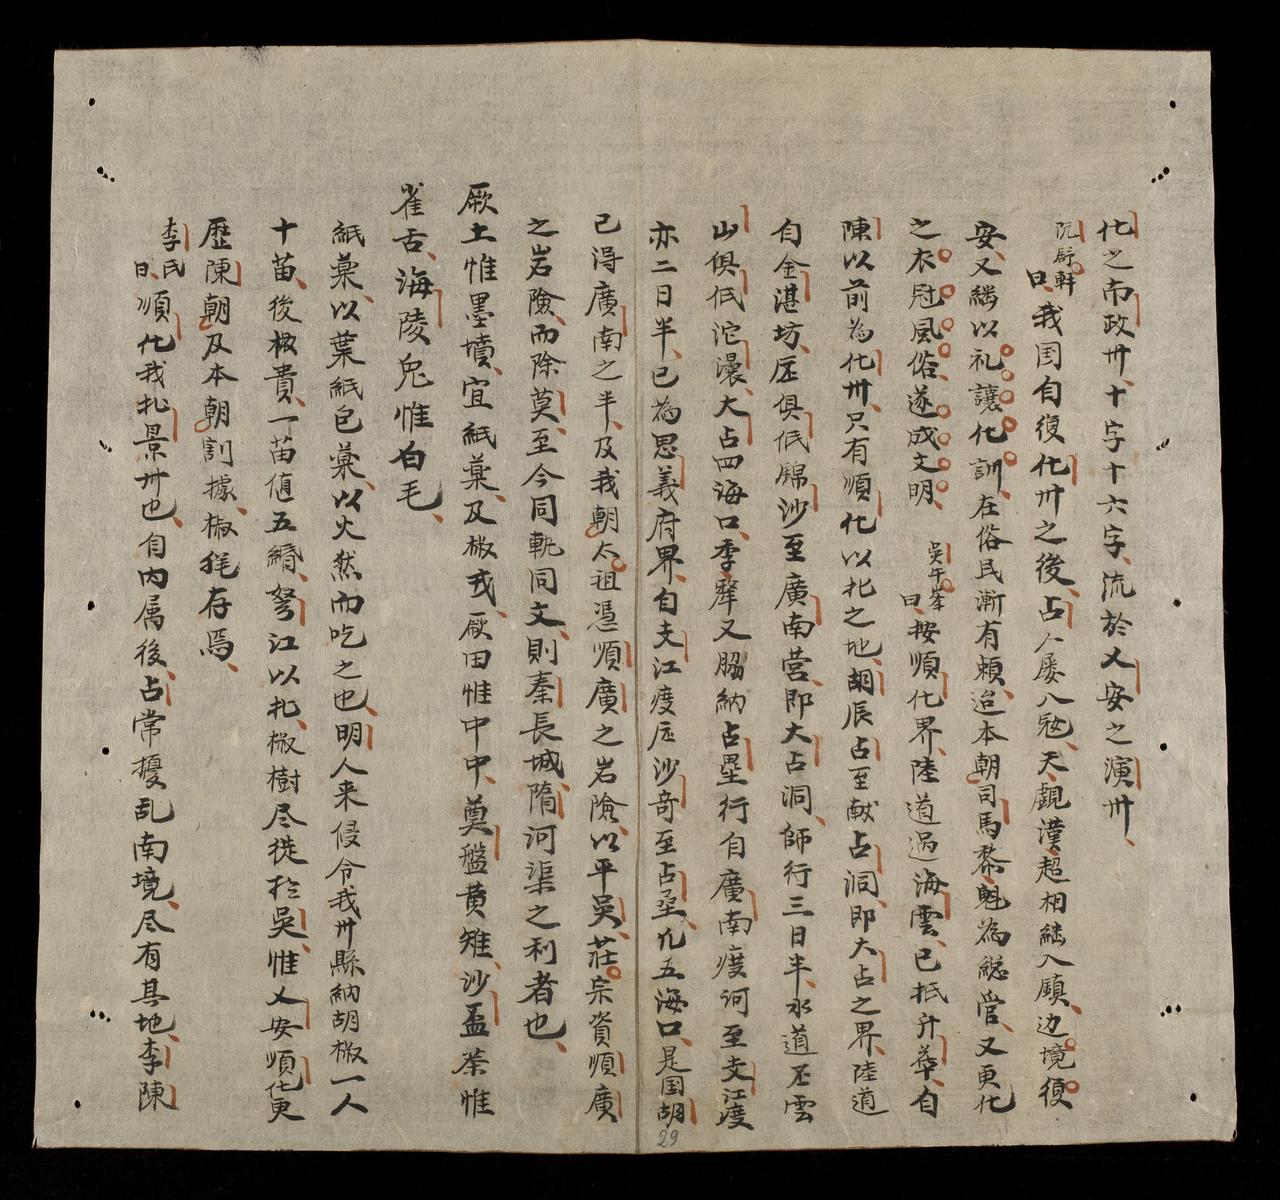 化之南政州十字十六字流於乂安之演州
阮辟軒曰我国自復化州之後占人屡入冦天覩漢超相継入顧边境復
安又継以礼讓化訓在俗民漸有頼迨本朝司馬黎魁為総管又更化
之衣冠風俗遂成文明 吳午峯曰按順化界陸道過海雲已抵升華自
陳以前為化州只有順化以北之地胡辰占至献占洞即大占之界陸道
自金湛坊屋俱低錦沙至廣南营即大占洞師行三日半水道丕雲
山俱低沱灢大占四海口季犛又脇納占壘行自廣南渡河至支江渡
亦二日半已為思義府界自支江渡屋沙奇至占壘凢五海口是国胡
已得廣南之半及我朝太祖憑順廣之岩險以平吳莊宗資順廣
之岩險而除莫至今同軌同文則秦長城隋河渠之利者也
厥土惟墨墳宜紙藁及椒或厥田惟中中奠盤黄雉沙盂茶惟
雀舌海陵鬼惟白毛
紙藁以葉紙包藁以火然而吃之也明人来侵令我州縣納胡椒一人
十苗後椒貴一苗値五緡弩江以北椒樹尽徙於吳惟乂安順化更
歷陳朝及本朝割據椒毦存焉
李氏曰順化我北景州也自内属後占常擾乱南境尽有其地李陳
29